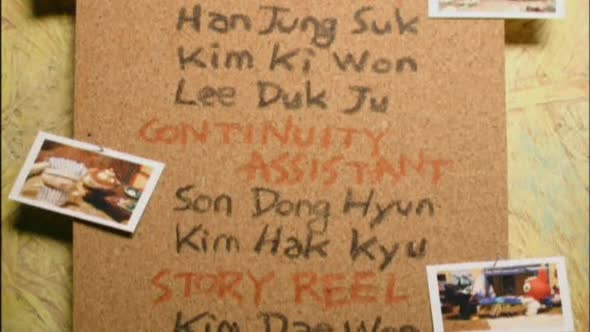 Han Jung Suk
Kim Ki Won
Lee Duk Ju
CONTINUITY
ASSISTANT
Son Dong Hyun
Kim Hak Kyu
STORY REEL
Kim Dae Woo